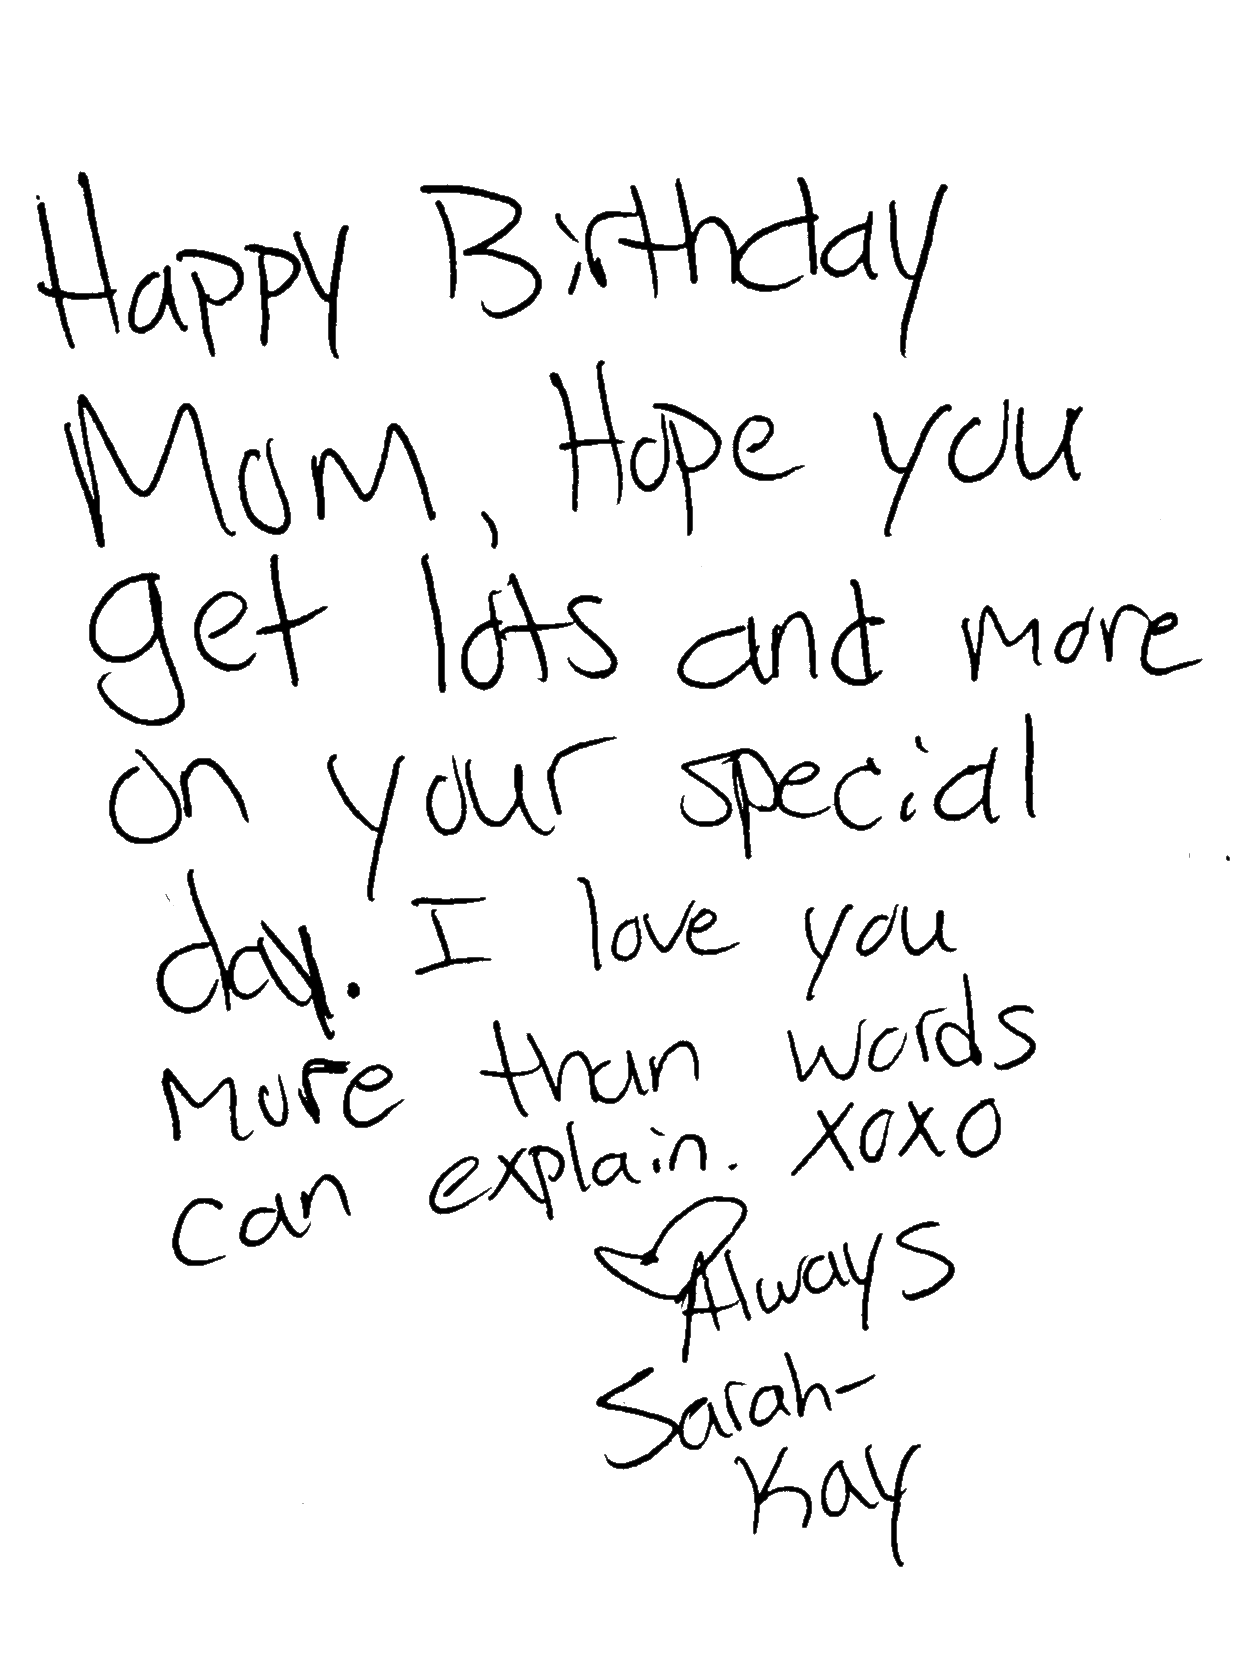 Happy Birthday
Mom, Hope you
get lots and more
on your special
day. I love you
more than words
can explain. XOXO
♡ Always
Sarah-
Kay